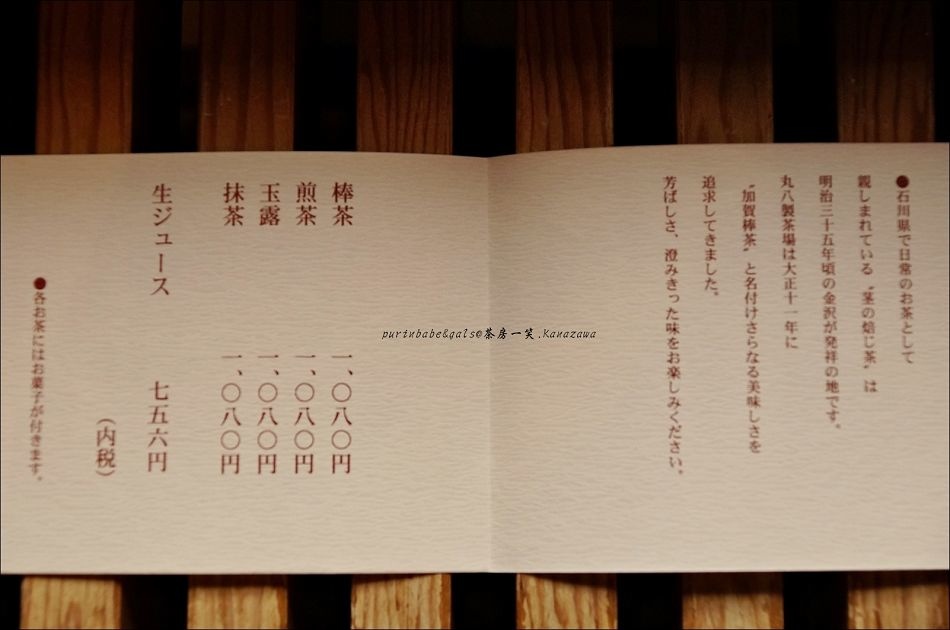 ●石川県で日常のお茶として
親しまれている〝茎の焙じ茶〟は
明治三十五年頃の金沢が発祥の地です。
丸八製茶場は大正十一年に
〝加賀棒茶〟と名付けさらなる美味しさを
追求してきました。
芳ばしさ、澄みきった味をお楽しみください。
棒茶 一、〇八〇円
煎茶 一、〇八〇円
玉露 一、〇八〇円
抹茶 一、〇八〇円
生ジュース 七五六円
（内税）
●各お茶にはお菓子が付きます。
purinbabe&gals@茶房一笑.Kanazawa